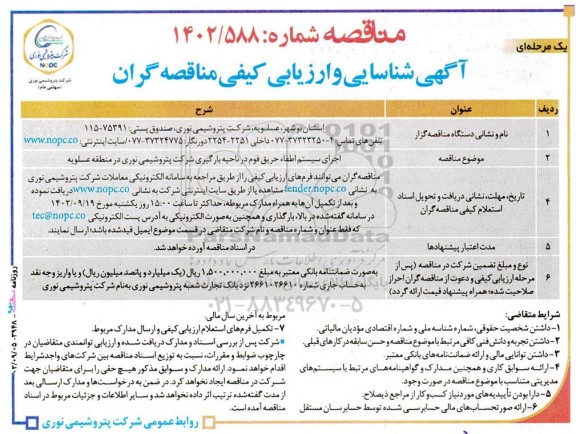 یک مرحله‌ای
مناقصه شماره: ۱۴۰۲/۵۸۸
شرکت پتروشیمی نوری
NOPC
شرکت پتروشیمی نوری
(سهامی عام)
آگهی شناسایی و ارزیابی کیفی مناقصه گران
ردیف عنوان شرح
۱ نام و نشانی دستگاه مناقصه‌گزار استان بوشهر، عسلویه، شرکت پتروشیمی نوری، صندوق پستی: ۷۵۳۹۱-۱۱۵
تلفن‌های تماس: ۴-۰۷۷۳۷۳۲۳۲۵۰ داخلی ۲۲۵۱-۲۲۵۴ دورنگار: ۳۷۳۲۴۴۷۵-۰۷۷ سایت اینترنتی: www.nopc.co
۲ موضوع مناقصه اجرای سیستم اطفاء حریق فوم در ناحیه بارگیری شرکت پتروشیمی نوری در منطقه عسلویه
۴ تاریخ، مهلت، نشانی دریافت و تحویل اسناد استعلام کیفی مناقصه‌گران مناقصه‌گران می‌توانند فرم‌های ارزیابی کیفی را از طریق مراجعه به سامانه الکترونیکی معاملات شرکت پتروشیمی نوری
به نشانی tender.nopc.co مشاهده یا از طریق سایت اینترنتی شرکت به نشانی www.nopc.co دریافت نموده
و بعد از تکمیل آن‌ها به همراه مدارک مربوطه، حداکثر تا ساعت ۱۵:۰۰ روز یکشنبه مورخ ۱۴۰۲/۰۹/۱۹
در سامانه گفته‌شده در بالا، بارگذاری و همچنین به‌صورت الکترونیکی به آدرس پست الکترونیکی tec@nopc.co
که فقط عنوان و شماره مناقصه و نام شرکت متقاضی در قسمت موضوع ایمیل قید شده باشد؛ ارسال نمایند.
۵ مدت اعتبار پیشنهادها در اسناد مناقصه آورده خواهد شد.
۶ نوع و مبلغ تضمین شرکت در مناقصه (پس از مرحله ارزیابی کیفی و دعوت از مناقصه‌گران احراز صلاحیت شده؛ همراه پیشنهاد قیمت ارائه گردد) به‌صورت ضمانتنامه بانکی معتبر به مبلغ ۱,۵۰۰,۰۰۰,۰۰۰ ریال (یک میلیارد و پانصد میلیون ریال) و یا واریز وجه نقد
به حساب جاری شماره ۲۶۶۱۰۲۶۶۱۰ نزد بانک تجارت شعبه پتروشیمی نوری به‌نام شرکت پتروشیمی نوری
ParsNamadData
۰۲۱-۸۸۳۴۹۶۷۰-۵
شرایط متقاضی:
۱-داشتن شخصیت حقوقی، شماره شناسه ملی و شماره اقتصادی مؤدیان مالیاتی.
۲-داشتن تجربه و دانش فنی کافی مرتبط با موضوع مناقصه و حسن سابقه در کارهای قبلی.
۳-داشتن توانایی مالی و ارائه ضمانتنامه‌های بانکی معتبر.
۴-ارائه سوابق کاری و همچنین مدارک و گواهینامه‌های مرتبط با سیستم‌های
مدیریتی متناسب با موضوع مناقصه در صورت وجود.
۵-دارا بودن تأییدیه‌های مورد نیاز کسب و کار از مراجع ذیصلاح.
۶-ارائه صورتحساب‌های مالی حسابرسی شده توسط حسابرسان مستقل
مربوط به آخرین سال مالی.
۷-تکمیل فرم‌های استعلام ارزیابی کیفی و ارسال مدارک مربوط.
شرکت پس از بررسی اسناد و مدارک دریافت شده و ارزیابی توانمندی متقاضیان در
چارچوب ضوابط و مقررات، نسبت به توزیع اسناد مناقصه بین شرکت‌های واجد شرایط
اقدام خواهد نمود. ارائه مدارک و سوابق مذکور هیچ حقی را برای متقاضیان جهت
شرکت در مناقصه ایجاد نخواهد کرد. در ضمن به درخواست‌ها و مدارک ارسالی بعد
از مدت گفته‌شده ترتیب اثر داده نخواهد شد و سایر اطلاعات و جزئیات مربوط در اسناد
مناقصه آمده است.
روابط عمومی شرکت پتروشیمی نوری